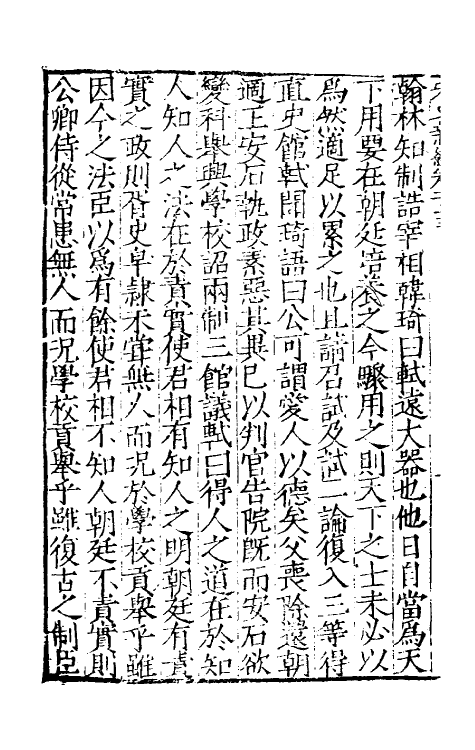 翰林知制誥宰相韓琦曰軾遠大器也他日自當爲天
下用要在朝廷培養之今驟用之則天下之士未必以
爲然適足以累之也且請召試及試二論復入三等得
直史館軾聞琦語曰公可謂愛人以德矣父喪除還朝
適王安石執政素惡其異己以判官告院旣而安石欲
變科舉興學校詔兩制三館議軾曰得人之道在於知
人知人之法在於責實使君相有知人之明朝廷有責
實之政則胥史皁隸未甞無人而況於學校貢舉乎雖
因今之法臣以爲有餘使君相不知人朝廷不責實則
公卿侍從常患無人而況學校貢舉乎雖復古之制臣